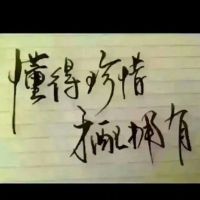 懂得珍惜
才配拥有